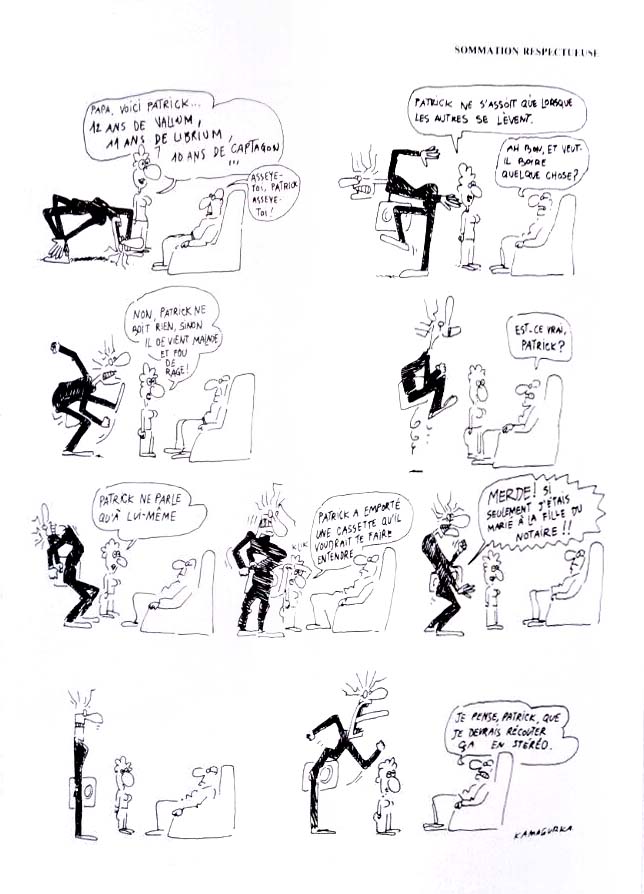 SOMMATION RESPECTUEUSE
PAPA, VOICI PATRICK...
12 ANS DE VALIUM,
11 ANS DE LIBRIUM,
10 ANS DE CAPTAGON
...
ASSEYE-
TOI, PATRICK
ASSEYE-
TOI!
PATRICK NE S'ASSOIT QUE LORSQUE
LES AUTRES SE LÈVENT.
AH BON, ET VEUT-
IL BOIRE
QUELQUE CHOSE?
NON, PATRICK NE
BOIT RIEN, SINON
IL DEVIENT MALADE
ET FOU
DE
RAGE!
EST-CE VRAI,
PATRICK?
PATRICK NE PARLE
QU'À LUI-MÊME
KLIK
PATRICK A EMPORTÉ
UNE CASSETTE QU'IL
VOUDRAIT TE FAIRE
ENTENDRE
MERDE! SI
SEULEMENT J'ÉTAIS
MARIÉ À LA FILLE DU
NOTAIRE!!
JE PENSE, PATRICK, QUE
JE DEVRAIS RÉCOUTER
ÇA EN STÉRÉO.
KAMAGURKA